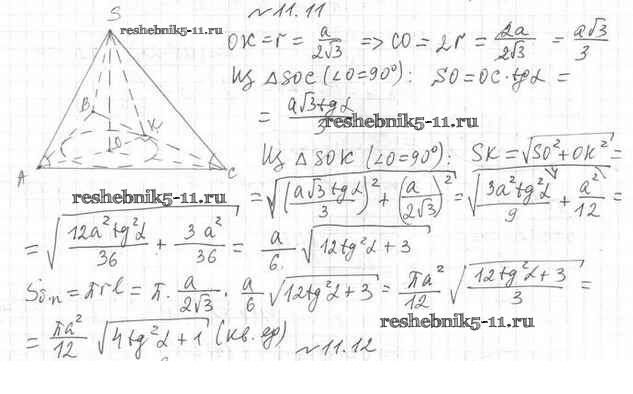 S
reshebnik5-11.ru
В
К
О
А
С
reshebnik5-11.ru
~11.11
OK = r = a/(2√3) => CO = 2r = 2a/(2√3) = a√3/3
Из △SOC (∠O=90°): SO = OC·tgα =
= a√3 tgα/3
reshebnik5-11.ru
Из △SOK (∠O=90°): SK = √(SO² + OK²) =
= √((a√3 tgα/3)² + (a/(2√3))²) = √(3a²tg²α/9 + a²/12) =
= √(12a²tg²α/36 + 3a²/36) = a/6 √(12tg²α + 3)
Sб.п = πrl = π · a/(2√3) · a/6 √(12tg²α + 3) = πa²/12 √((12tg²α + 3)/3) =
reshebnik5-11.ru
= πa²/12 √(4tg²α + 1) (кв. ед)
~11.12